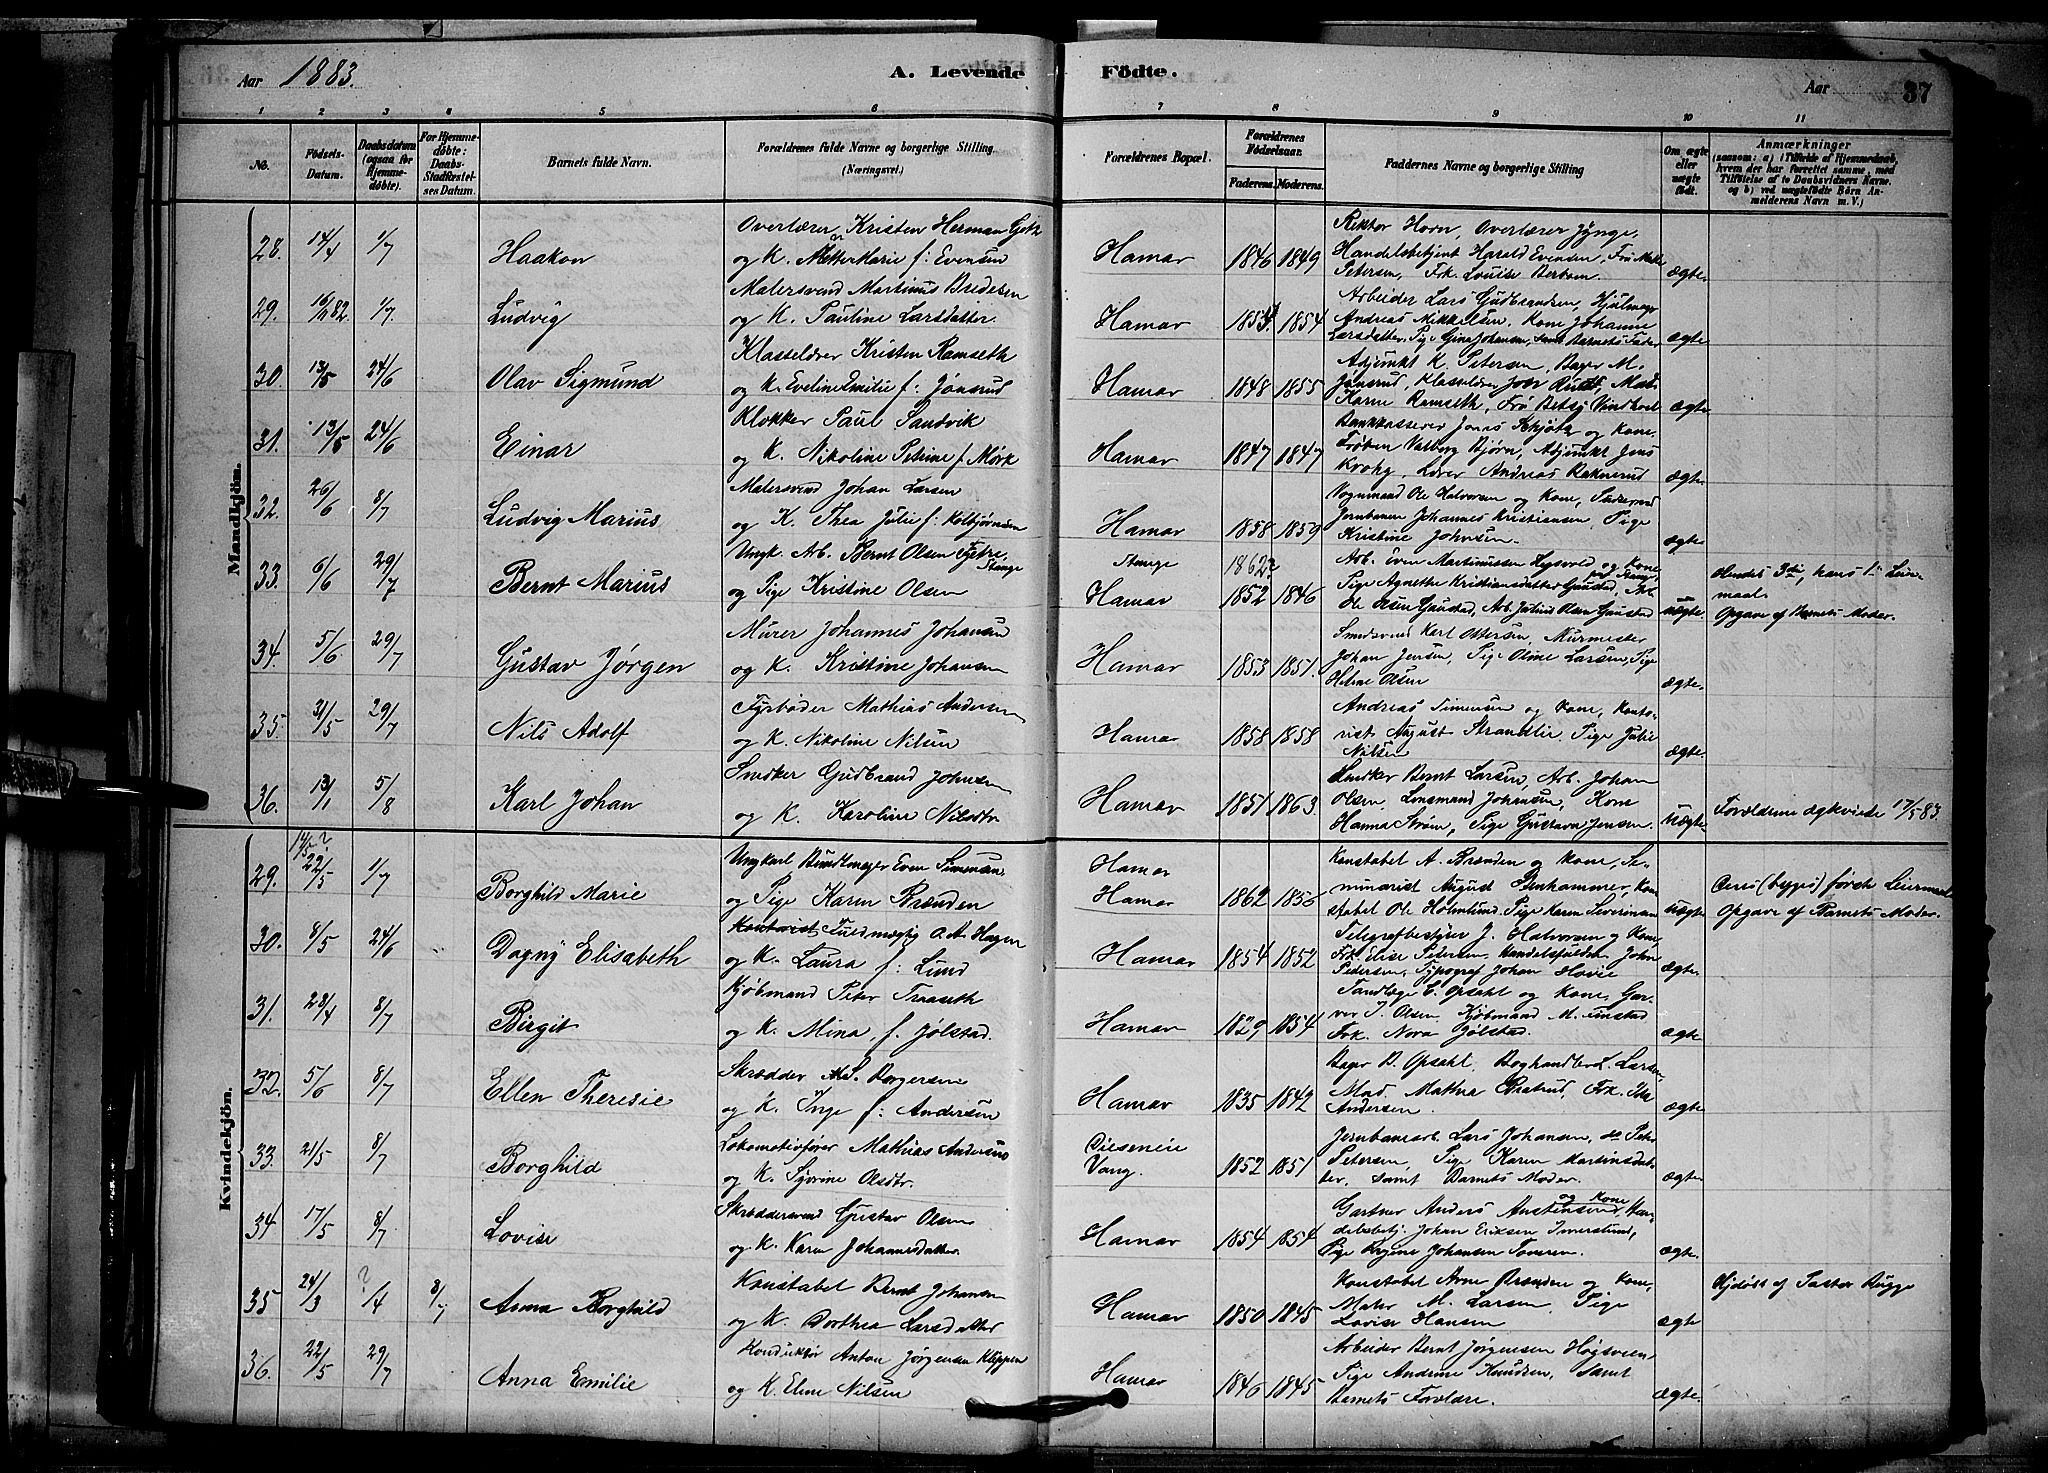 Aar 1883.
A. Levende Födte.
Aar
37
1 2 3 4 5 6 7 8 9 10 11
No.
Födsels-Datum.
Daabsdatum (ogsaa for Hjemmedøbte).
For Hjemmedøbte: Daabs-Stadfæstelses Datum.
Barnets fulde Navn.
Forældrenes fulde Navne og borgerlige Stilling (Næringsvei.)
Forældrenes Bopæl.
Forældrenes Födselsaar.
Faderens. Moderens.
Faddernes Navne og borgerlige Stilling
Om ægte eller uægte födt.
Anmærkninger
(saasom: a) i Tilfælde af Hjemmedaab, hvem der har forrettet samme, med Tilföielse af to Daabsvidners Navne, og b) ved uægtefödte Börn Anmelderens Navn m. V.)
Mandkjön.
28. 14/4 1/7 Haakon
Overlærer Kristen Herman
og K. Mette Marie f: Evensen
Hamar 1846 1849
Rektor Horn, Overlærer Jynge,
Handelsbetjent Harald Evensen, Fru
Petersen, Frk. Louise ægte
29. 82. 1/7. Ludvig
Malersvend Martinus Bredesen
og K. Pauline Larsdatter.
Hamar 1854
Arbeider Lars Gudbrandsen,
Andreas Mikkelsen, Kone Johanne
Larsdatter, Pige Gina Johansen, samt Barnets Fader ægte
30. 13/5 24/6 Olav Sigmund
Klasselærer Kristen Ramseth
og K. Eveline Emilie f: Jønsrud
Hamar 1848 1855
Adjunkt K. Petersen, Bager M.
Jønsrud, Klasselærer
Karen Ramseth, Frø Betsy ægte
31. 13/5 24/6 Einar
Klokker Paul Sandvik
og K. Nikoline Petrine f. Mørk
Hamar 1847 1847
Bankkasserer Jens og Kone,
Frøken Valborg Bjørn, Adjunkt Jens
Krohg, Lærer Andreas ægte
32. 26/6 8/7 Ludvig Marius
Malersvend Johan Larsen
og K. Thea Julie f: Kolbjørnsen
Hamar 1858 1859
Vognmand Ole Halvorsen og Kone,
Jernbanen Johannes Kristiansen, Pige
Kristine Johnsen. ægte
33. 6/6 29/7 Bernt Marius
Ungk. Arb. Bernt Olsen Stange
og Pige Kristine Olsen
Stange 1862?
Hamar 1852 1846
Arb. Even Martinussen og Kone
Pige Agnethe Kristiansdatter Gaustad, Arb.
Ole Olsen Gaustad, Arb. Julius Olsen Gaustad uægte
Hendes 3die, hans 1ste Leiermaal.
Opgave af Barnets Moder.
34. 5/6 29/7 Gustav Jørgen
Murer Johannes Johansen
og K. Kristine Johansen
Hamar 1853 1851.
Smedsvend Karl Ottersen, Murmester
Johan Jensen, Pige Oline Larsen, Pige
Helene Olsen ægte.
35. 31/5 29/7 Nils Adolf
Fyrbøder Mathias Andersen
og K. Nikoline Nilsen
Hamar 1858 1858
Andreas Simensen og Kone, Konto-
rist August Strandlie, Pige Julie
Nilsen ægte.
36. 13/1 5/8 Karl Johan
Snedker Gudbrand Johnsen
og K. Karoline Nilsdtr
Hamar 1851 1863.
Snedker Bernt Larsen, Arb. Johan
Olsen, Johansen, Kone
Hanna Strøm, Pige Gustava Jensen. uægte
Forældrene ægteviede 17/5 83.
Kvindekjön.
29. 14/5? 22/5 1/7 Borghild Marie
Ungkarl Buntmager Even Simensen
og Pige Karen Brænden
Hamar
Hamar 1862 1856
Konstabel A. Brænden og Kone, Se-
minarist August Stenhammer, Kon-
stabel Ole Holmlund, Pige Karen uægte
(begges) første Leiermaal
Opgave af Barnets Moder.
30. 8/5 24/6 Dagny Elisabeth
Fuldmægtig O. A. Hagen
og K. Laura f: Lund
Hamar 1854 1852
Telegrafbestyrer J. Halvorsen og Kone,
Frk. Elise Petersen, John
Pedersen, Typograf Johan Hovie ægte
31. 28/4 8/7 Birgit
Kjøbmand Peter Traaseth
og K. Mina, f. Jølstad.
Hamar 1829 1854
Tandlæge E. Opsahl og Kone, Gar-
ver J. Olsen, Kjøbmand M.
Frk. Nora Jølstad. ægte
32. 5/6 8/7 Ellen Theresie
Skrædder A. S. Borgersen
og K. Inge f: Andersen
Hamar 1835 1842
Bager B. Opsahl, Boghandler L. Larsen,
Mad. Mathea Frk. Ida
Andersen. ægte
33. 21/5 8/7 Borghild
Lokomotivfører Mathias Andersen
og K. Syverine Olsdtr.
Vang. 1852 1851
Jernbanearb. Lars Johansen, do Peter
Petersen, Pige Karen Martinsdat-
ter, samt Barnets Moder. ægte
34 17/5 8/7 Lovise
Skræddersvend Gustav Olsen
og K. Karen Johannesdatter.
Hamar 1854 1854
Gartner Anders Austensen og Kone, Han-
delsbetj. Johan Eriksen Imerslund,
Pige Johansen ægte.
35 24/3 ?/4 8/7 Anna Borghild
Konstabel Bernt Johansen
og K. Dorthea Larsdatter
Hamar 1850 1845
Konstabel Arne Brænden og Kone,
Maler M. Larsen, Pige
Lovise Hansen ægte
Hjdøbt af Pastor Bugge
36. 22/5 29/7 Anna Emilie
Konduktør Anton Jørgensen Kleppen
og K. Eline Nilsen
Hamar 1846 1845
Arbeider Bernt Jørgensen Høgsveen,
Pige Andrine Knudsen, samt
Barnets Forældre. ægte.